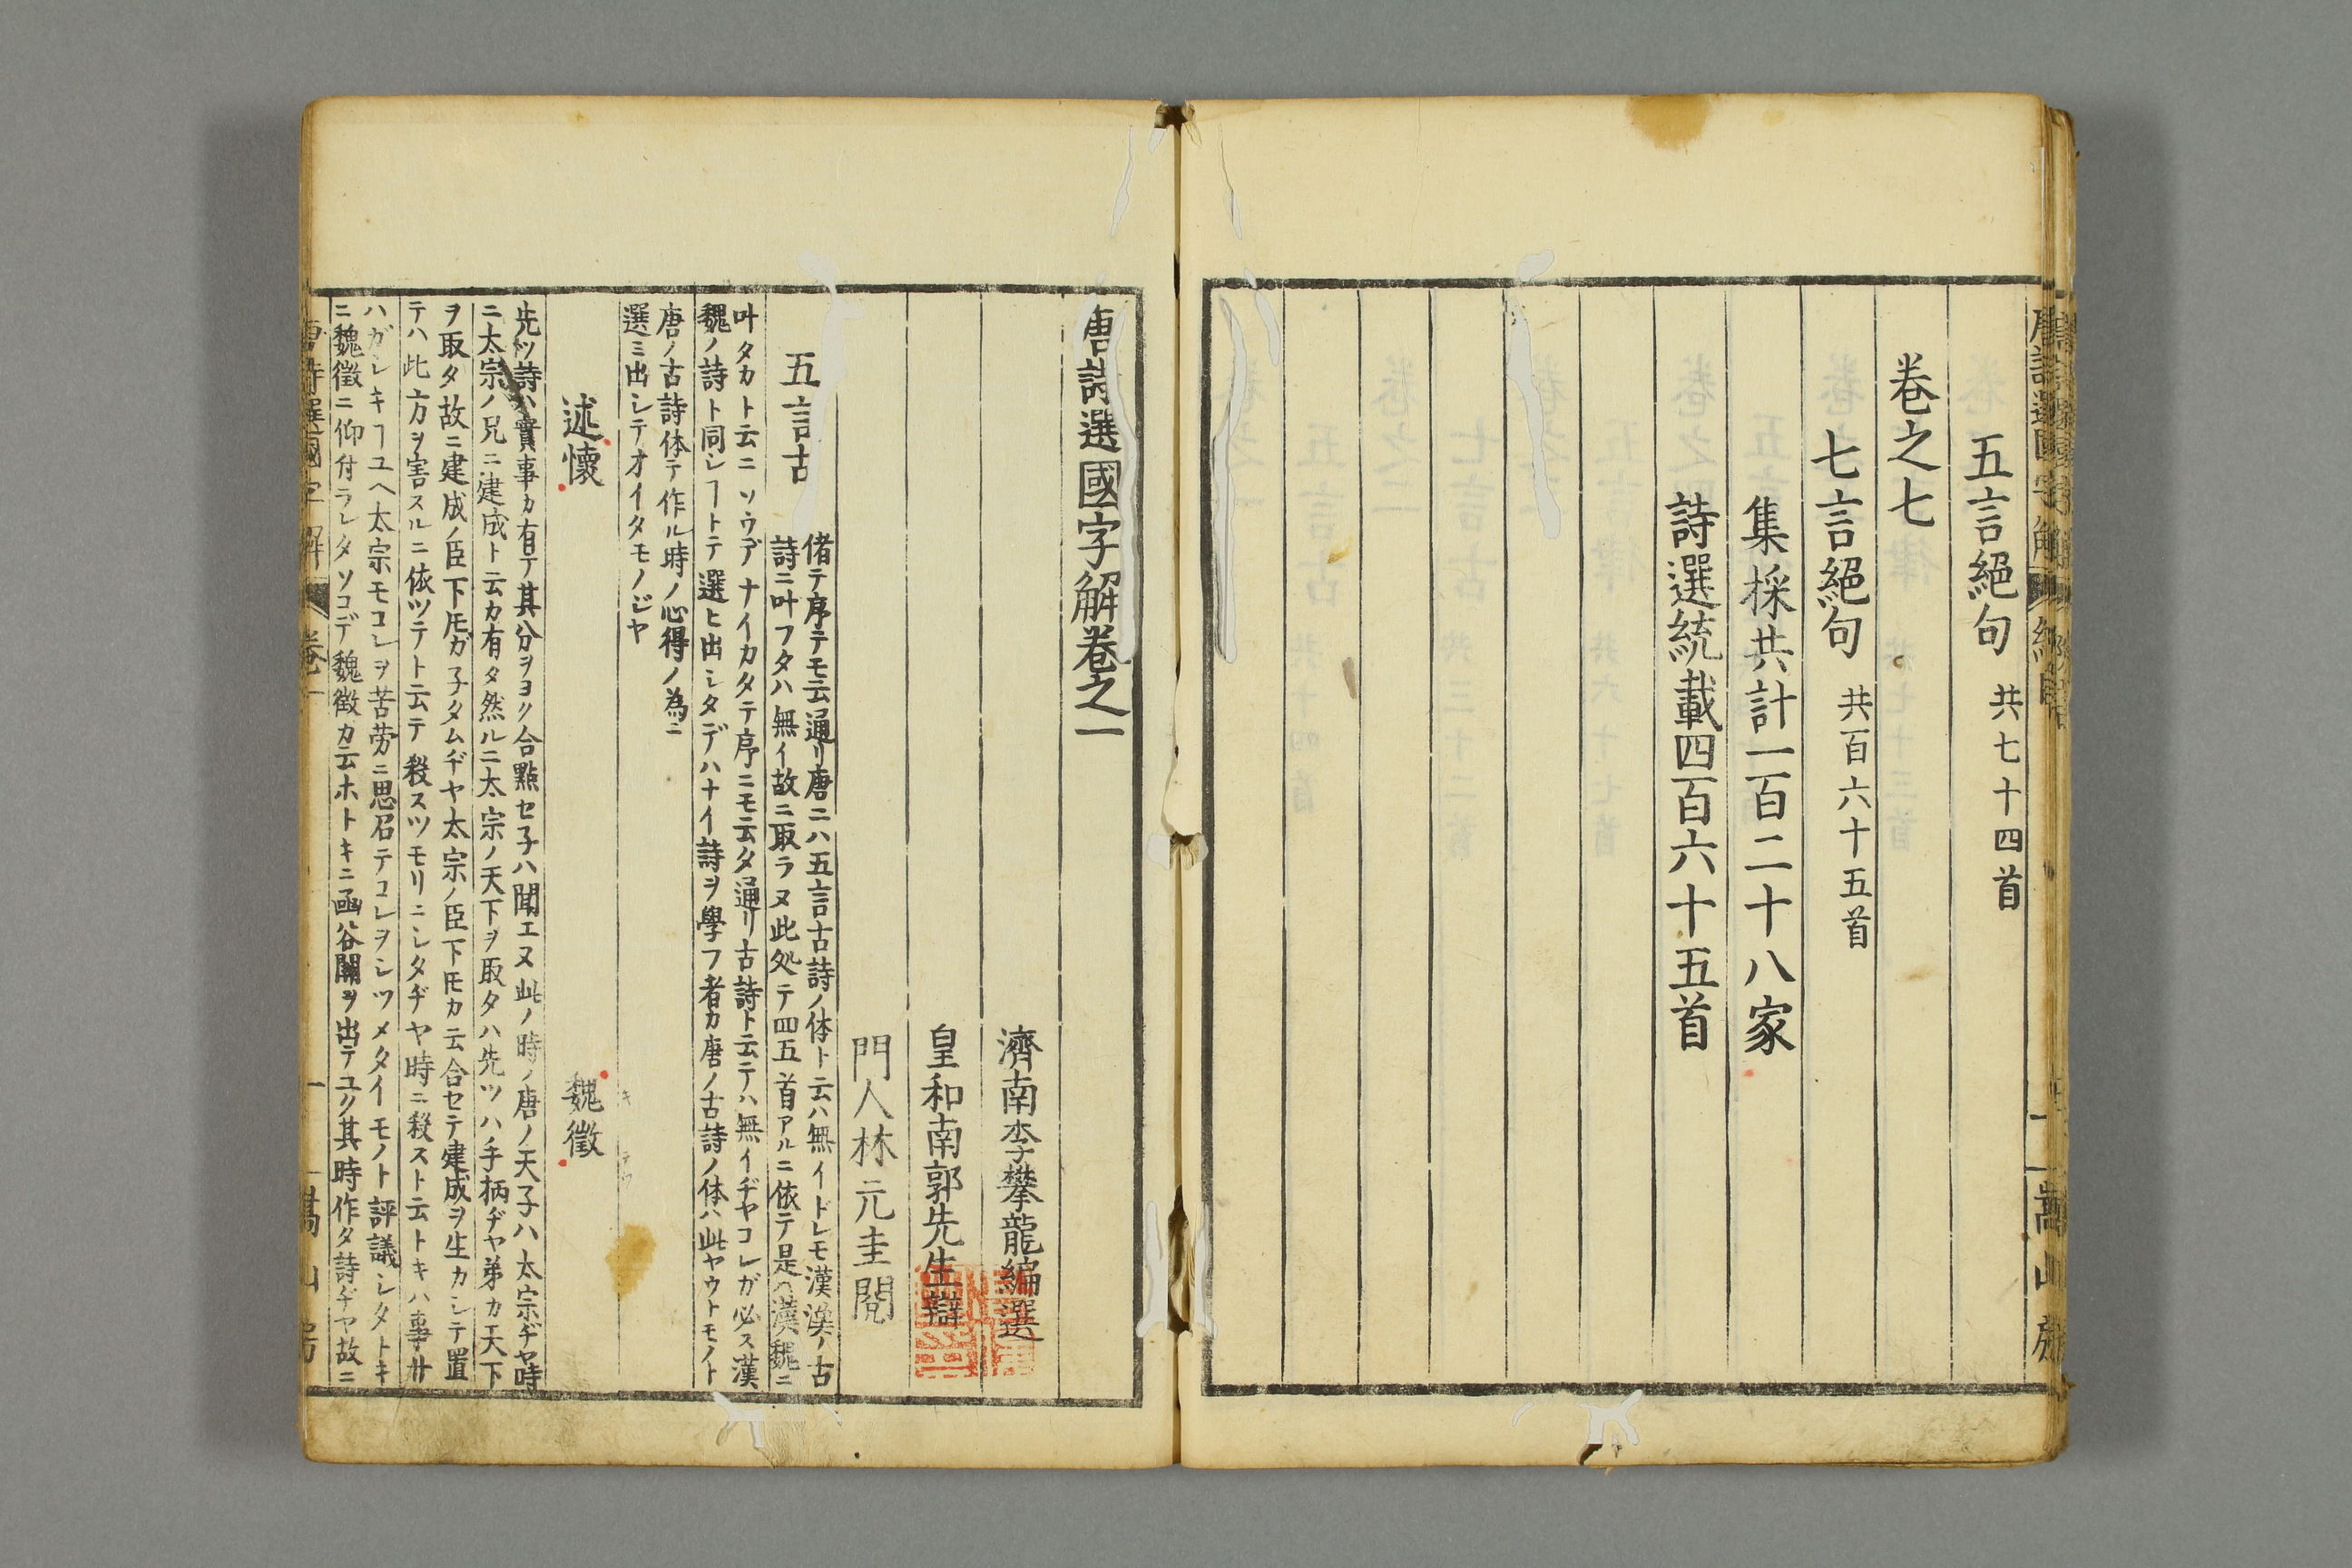 五言絕句 共七十四首
卷之七
七言絕句 共百六十五首
集採共計一百二十八家
詩選統載四百六十五首
唐詩選國字解卷之一
濟南李攀龍編選
皇和南郭先生辯
門人林元圭閱
五言古
偖テ序テモ云通リ唐ニハ五言古詩ノ体ト云ハ無イドレモ漢漢ノ古
詩ニ叶フタハ無イ故ニ取ラヌ此処テ四五首アルニ依テ是ハ漢魏ニ
叶タカト云ニソウデナイカタテ序ニモ云タ通リ古詩ト云テハ無イヂヤコレガ必ス漢
魏ノ詩ト同シヿトテ選ヒ出シタデハナイ詩ヲ學フ者カ唐ノ古詩ノ体ハ此ヤウトモノト
唐ノ古詩体テ作ル時ノ心得ノ為ニ
選ミ出シテオイタモノジヤ
述懷 魏徵
先ツ詩ハ實事カ有テ其分ヲヨク合點セ子ハ聞エヌ此ノ時ノ唐ノ天子ハ太宗ヂヤ時
ニ太宗ノ兄ニ建成ト云カ有タ然ルニ太宗ノ天下ヲ取タハ先ツハ手柄ヂヤ弟カ天下
ヲ取タ故ニ建成ノ臣下𪜈ガ子タムヂヤ太宗ノ臣下𪜈カ云合セテ建成ヲ生カシテ置
テハ此方ヲ害スルニ依ツテト云テ殺スツモリニシタヂヤ時ニ殺スト云トキハ事廾
ハガシキヿユヘ太宗モコレヲ苦労ニ思召テコレヲシツメタイモノト評議シタトキ
ニ魏徵ニ仰付ラレタソコデ魏徵カ云ホトキニ函谷關ヲ出テユク其時作タ詩ヂヤ故ニ